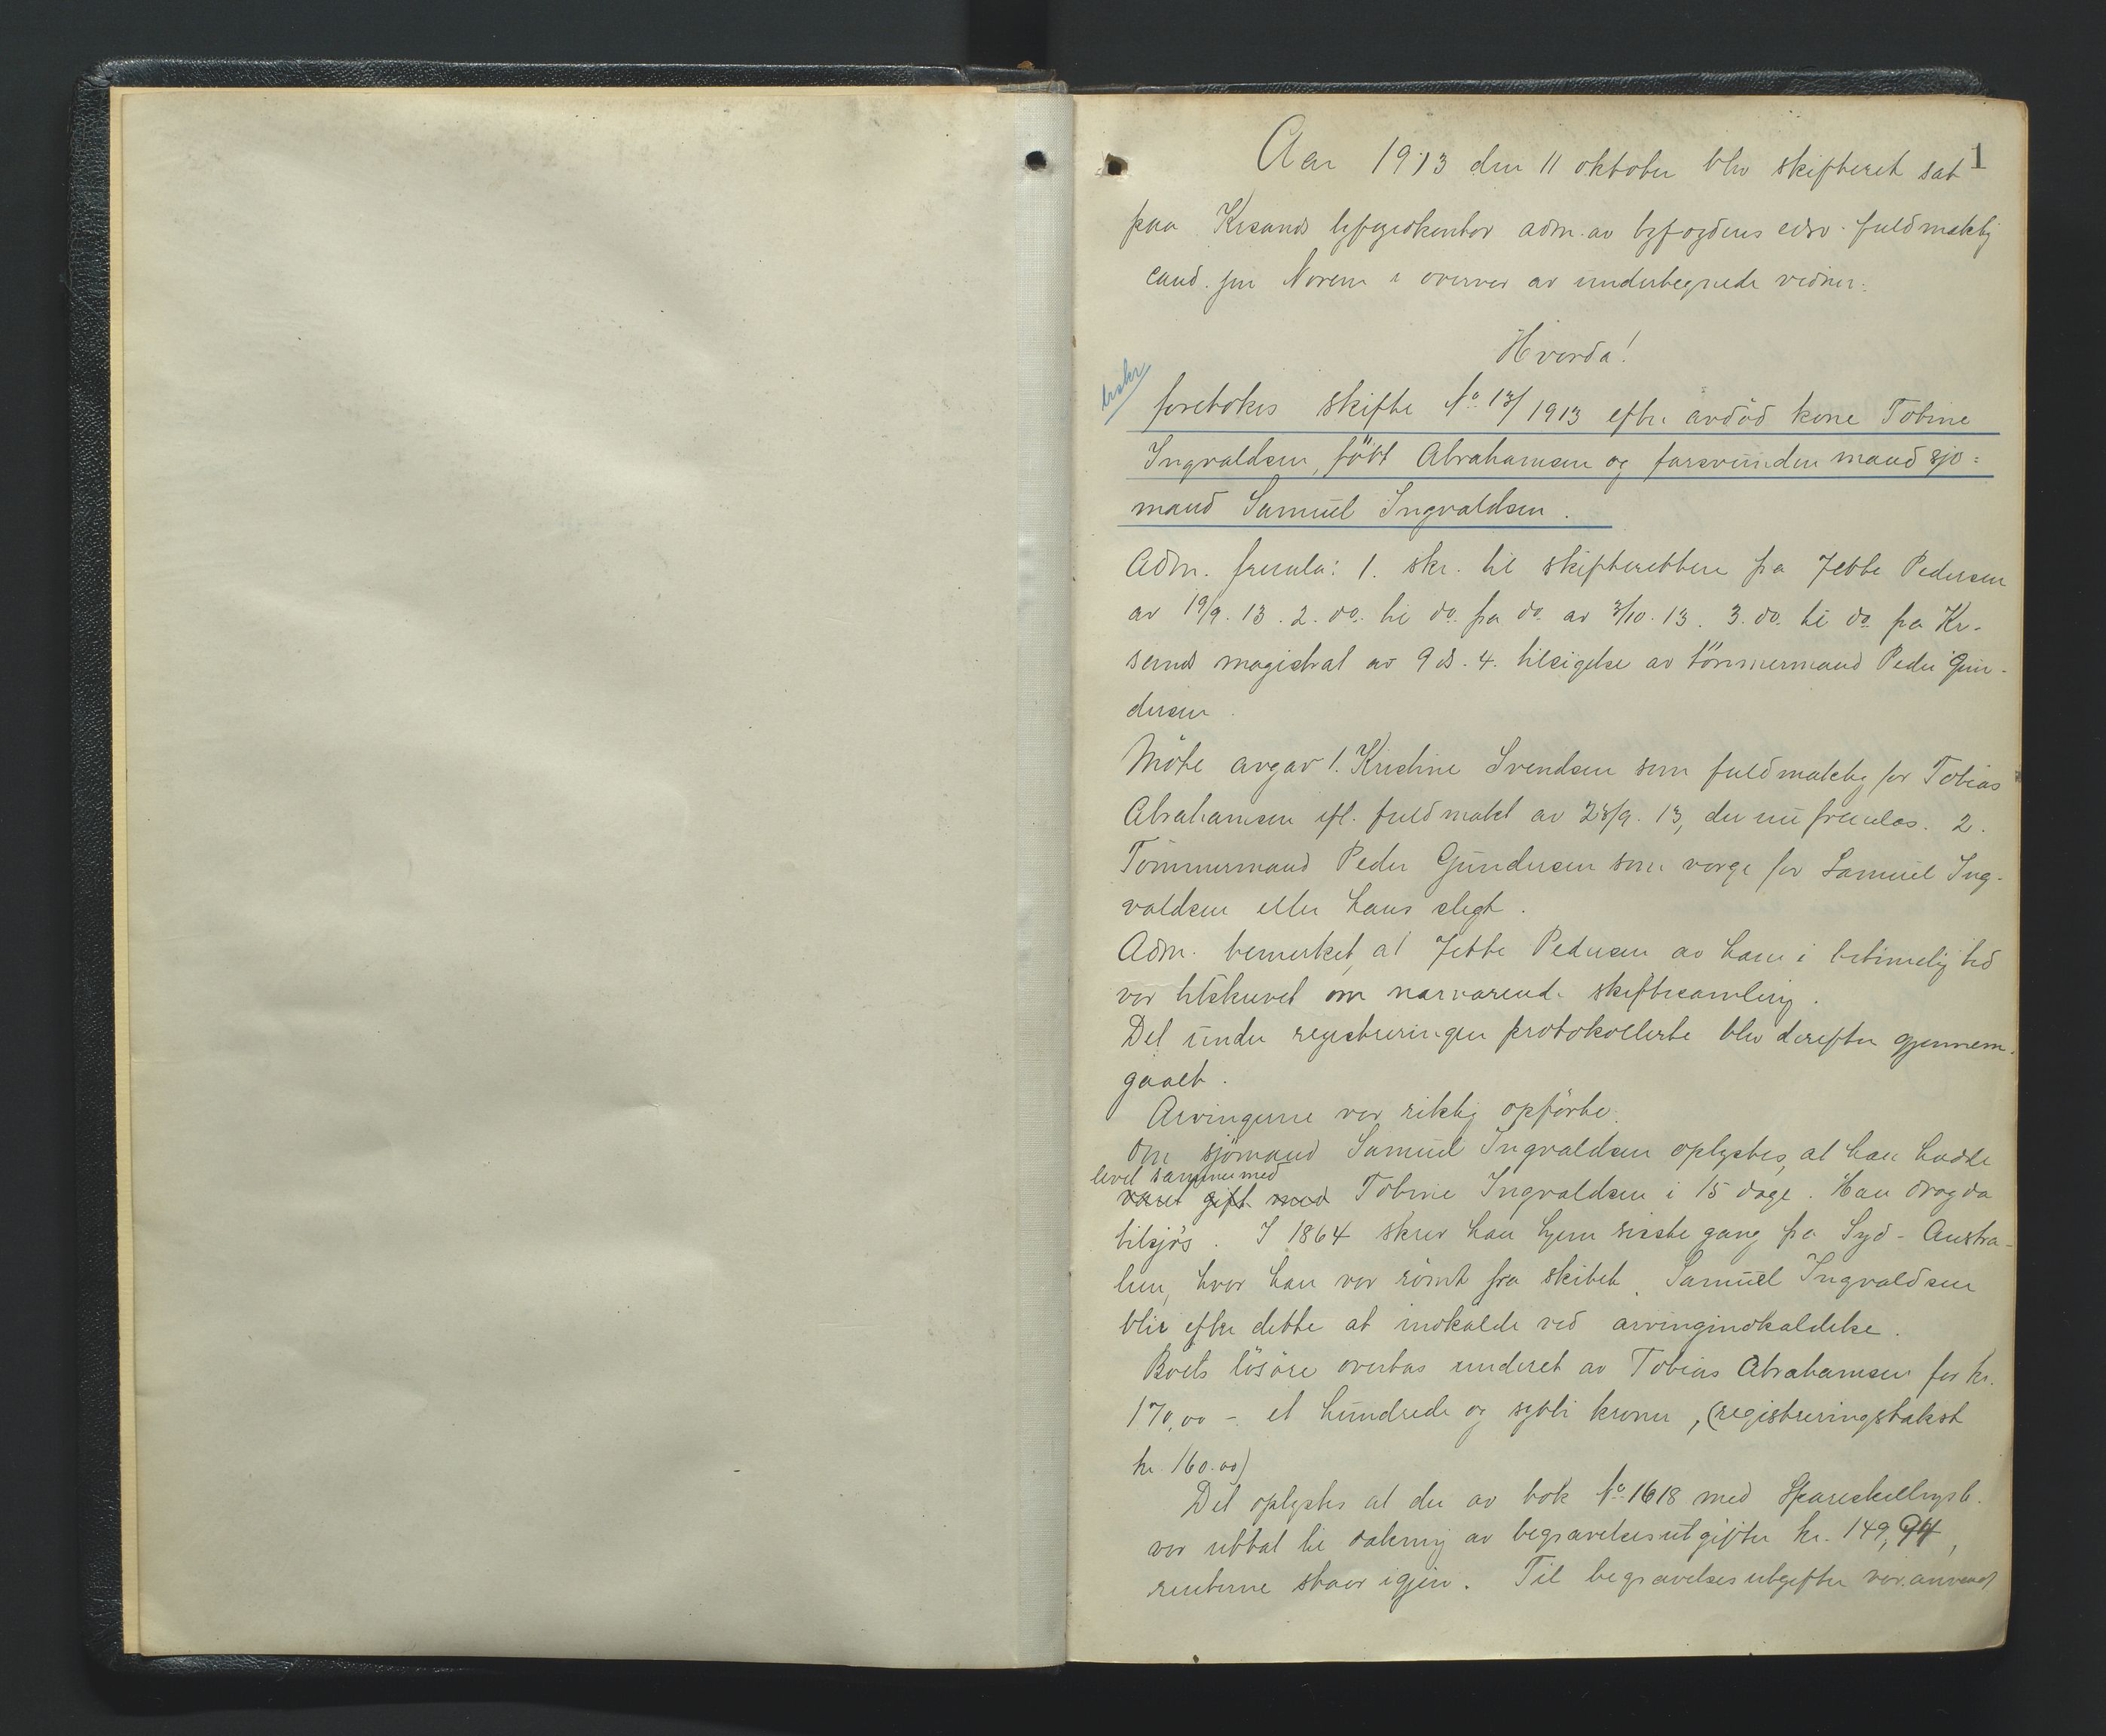 1
Aar 1913 den 11 oktober blev skifteret sat
paa Krsands byfogedkontor adm. av byfogdens edsv. fuldmektig
cand. jur Norem i overver av undertegnede vidner.
Hvorda!
beskr
foretokes skifte No 13/1913 efter avdöd kone Tobine
Ingvaldsen, född Abrahamsen og forsvunden mand sjö=
mand Samuel Ingvaldsen.
Adm. fremla: 1. skr. til skifteretten fra Jebbe Pedersen
av 19/9. 13. 2. do. til do. fra do. av 3/10. 13. 3. do. til do. fra Kr.
sands magistrat av 9 ds. 4. tilsigelse av tömmermand Peder Gun-
dersen.
Möte avgav 1. Kristine Svendsen som fuldmektig for Tobias
Abrahamsen ifl. fuldmakt av 23/9. 13, der nu fremlas. 2.
Tömmermand Peder Gundersen som verge for Samuel Ing-
valdsen eller hans slegt.
Adm. bemerket, at Jebbe Pedersen av ham i betimelig tid
var tilskrevet om nærværende skiftesamling.
Det under registreringen protokollerte blev derefter gjennem-
gaaet.
Arvingerne var riktig opförte.
Om sjömand Samuel Ingvaldsen oplystes, at han hadde
levet sammen med
været gift med Tobine Ingvaldsen i 15 dage. Han drog da
tilsjös. I 1864 skrev han hjem siste gang fra Syd-Austra-
lien, hvor han var römt fra skibet. Samuel Ingvaldsen
blir efter dette at indkalde ved arvingindkaldelse.
Boets lösöre overtas underet av Tobias Abrahamsen for kr.
170,00 - et hundrede og sytti kroner, (registreringstakst
kr. 160.00)
Det oplystes at der av bok No 1618 med Spareskillingsb.
var uttat til dækning av begravelsesutgifter kr. 149,94,
renterne staar igjen. Til begravelsesutgifter var anvendt